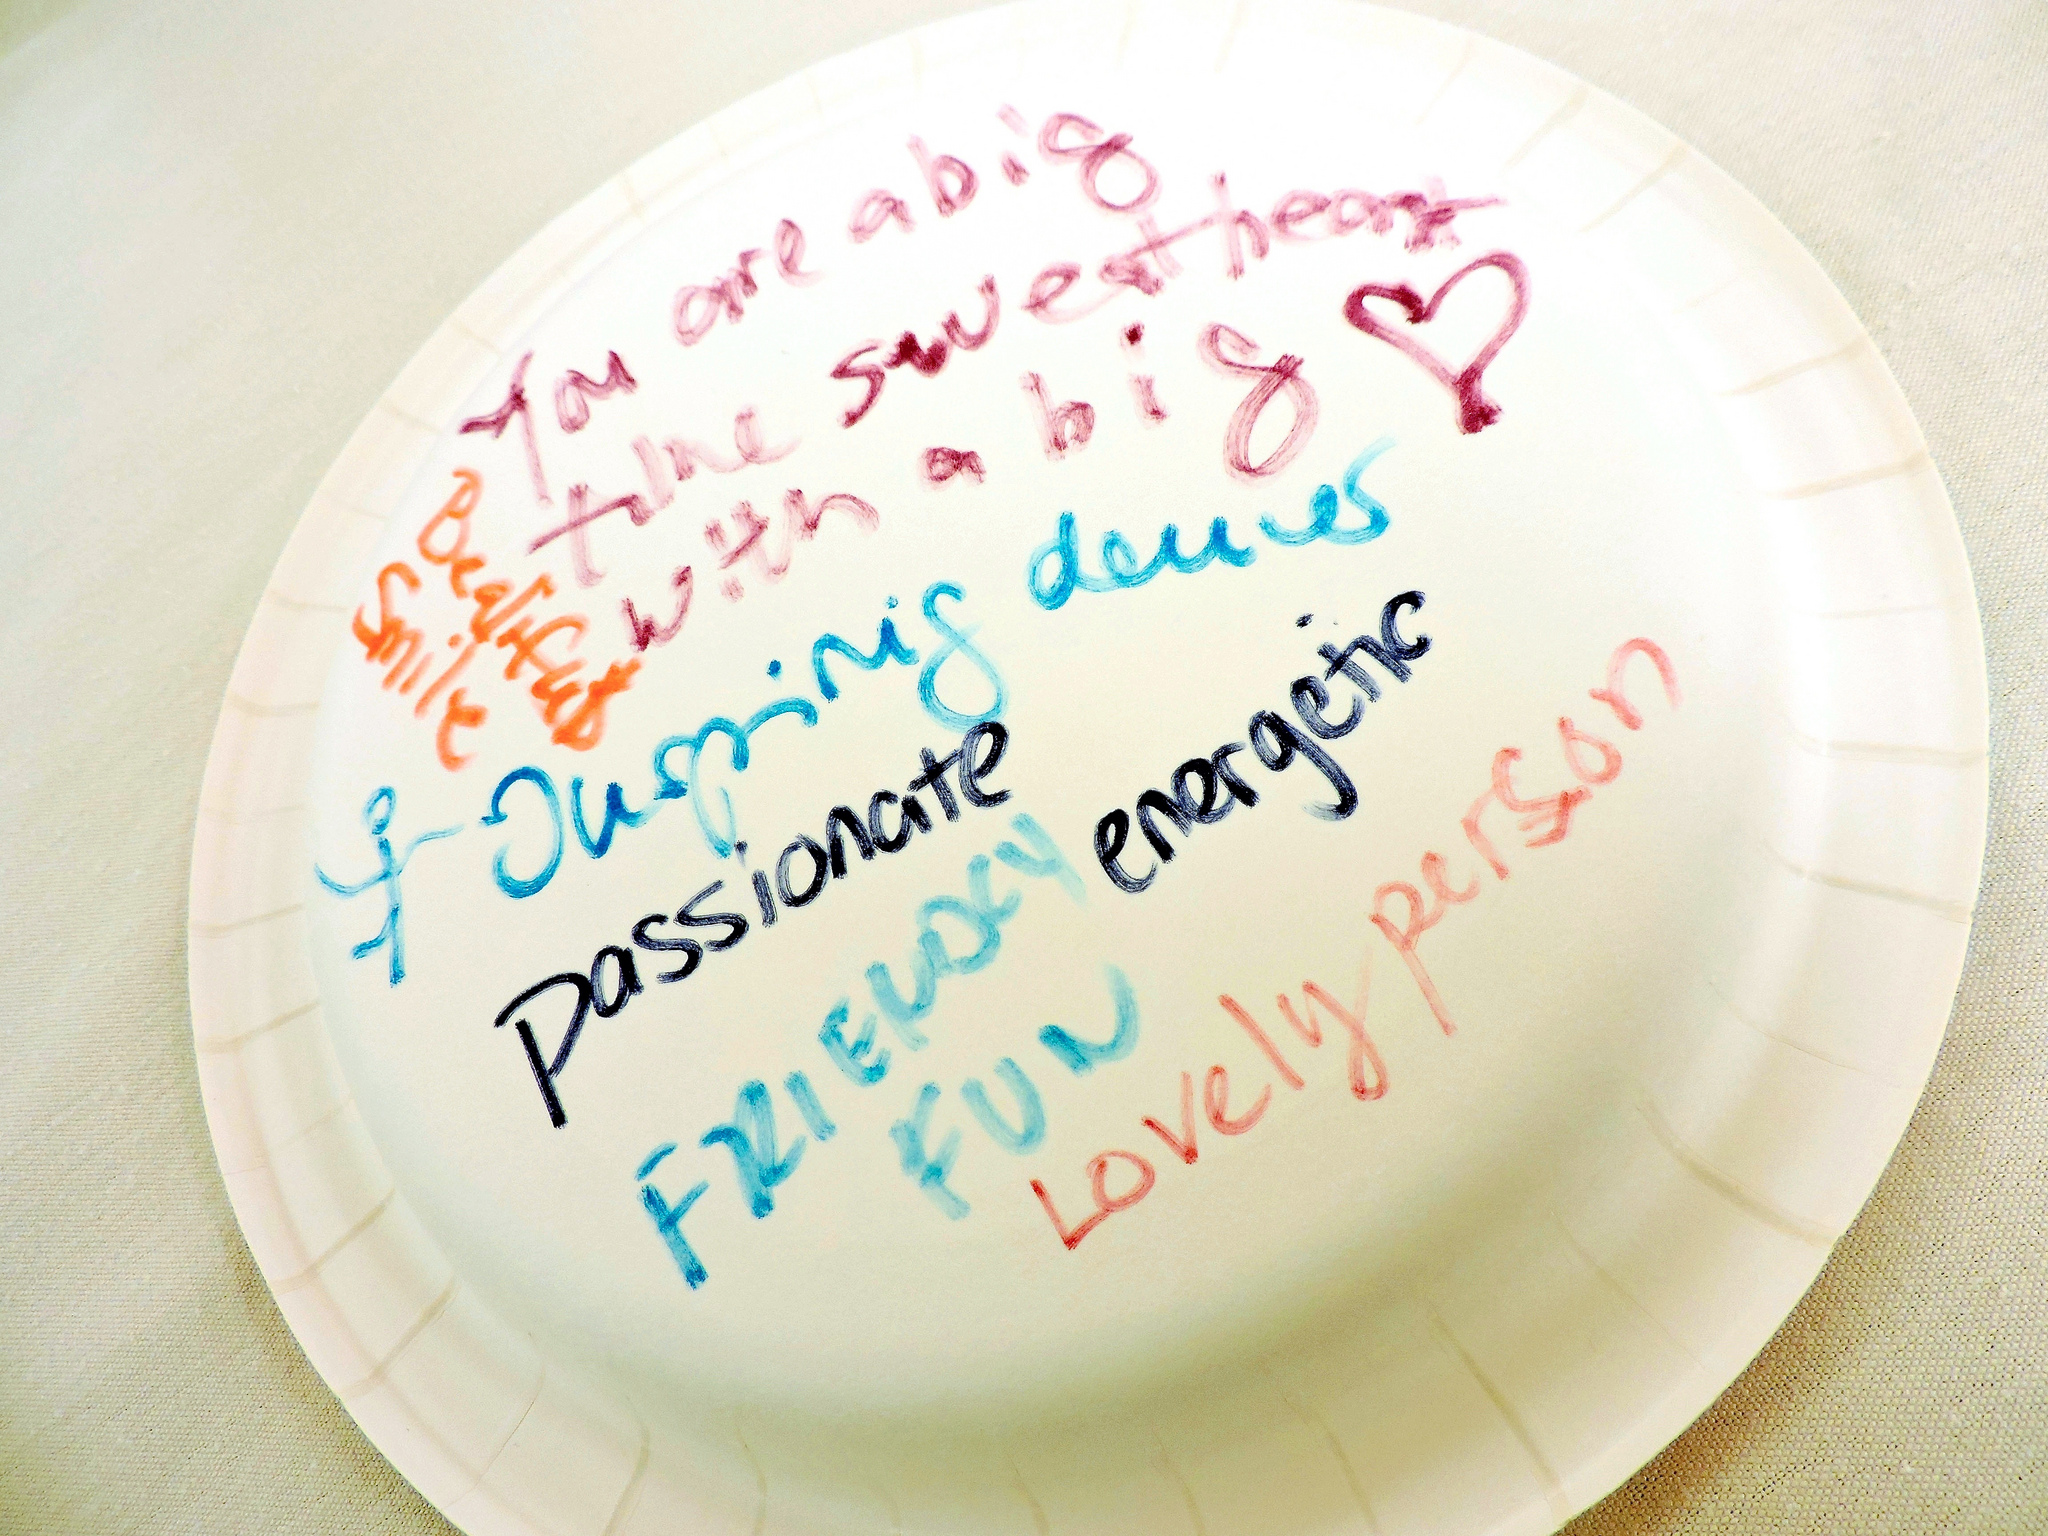 You are a big
time sweetheart
with a big
Beautiful
smile
Inspiring
passionate
energetic
FRIENDLY
FUN
Lovely person